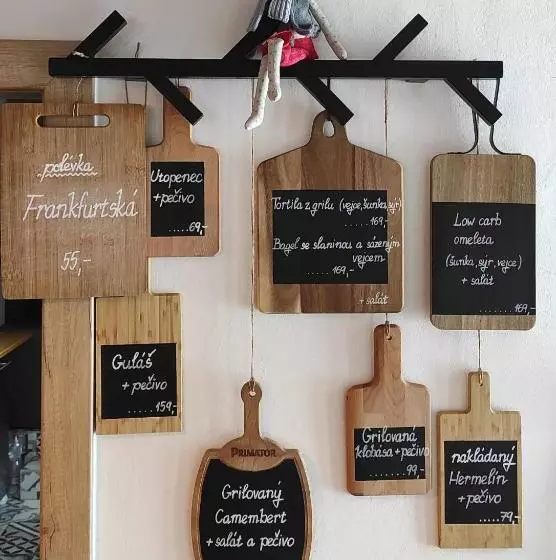 polévka
Frankfurtská
55,-
Utopenec
+pečivo
.....69,-
Tortila z grilu (vejce,šunka,sýr)
.....169,-
Bagel se slaninou a sázeným
vejcem
......169,-
+ salát
Low carb
omeleta
(šunka, sýr, vejce)
+ salát
.....169,-
Guláš
+ pečivo
.....159,-
PRIMATOR
Grilovaný
Camembert
+ salát a pečivo
Grilovaná
klobása + pečivo
........99,-
nakládaný
Hermelín
+ pečivo
.....79,-